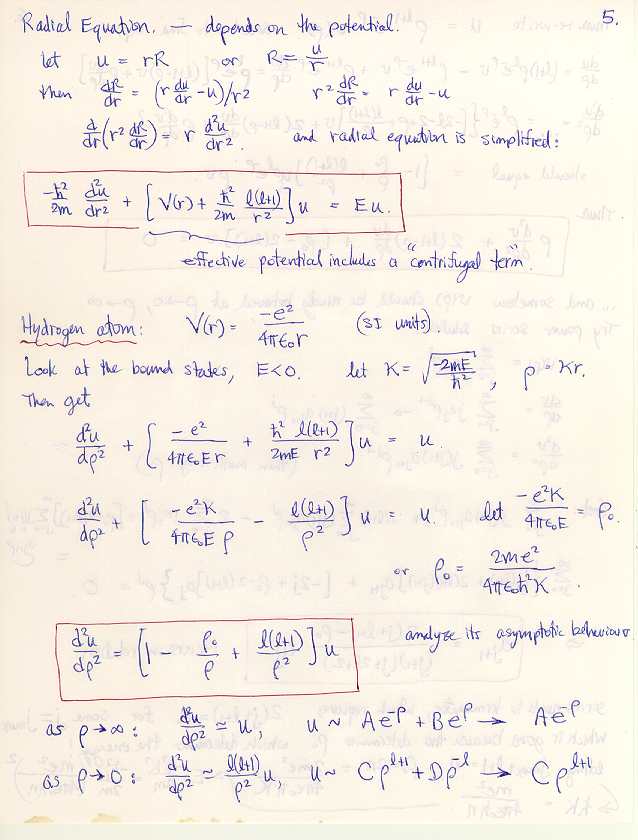 5.
Radial Equation. — depends on the potential.
let u = rR or R = u/r
then dR/dr = (r du/dr - u)/r² r² dR/dr = r du/dr - u
d/dr(r² dR/dr) = r d²u/dr². and radial equation is simplified:
-ħ²/2m d²u/dr² + [V(r) + ħ²/2m l(l+1)/r²]u = Eu.
effective potential includes a "centrifugal term".
Hydrogen atom: V(r) = -e²/4πε₀r (SI units).
Look at the bound states, E<0. let K = √(-2mE/ħ²), ρ = Kr.
Then get
d²u/dρ² + [-e²/4πε₀Er + ħ²/2mE l(l+1)/r²]u = u.
d²u/dρ² + [-e²K/4πε₀Eρ - l(l+1)/ρ²]u = u. let -e²K/4πε₀E = ρ₀.
or ρ₀ = 2me²/4πε₀ħ²K.
d²u/dρ² = [1 - ρ₀/ρ + l(l+1)/ρ²]u analyze its asymptotic behaviour.
as ρ→∞: d²u/dρ² ≃ u, u ~ Ae^-ρ + Be^ρ → Ae^-ρ
as ρ→0: d²u/dρ² ≃ l(l+1)/ρ² u, u ~ Cρ^l+1 + Dρ^-l → Cρ^l+1